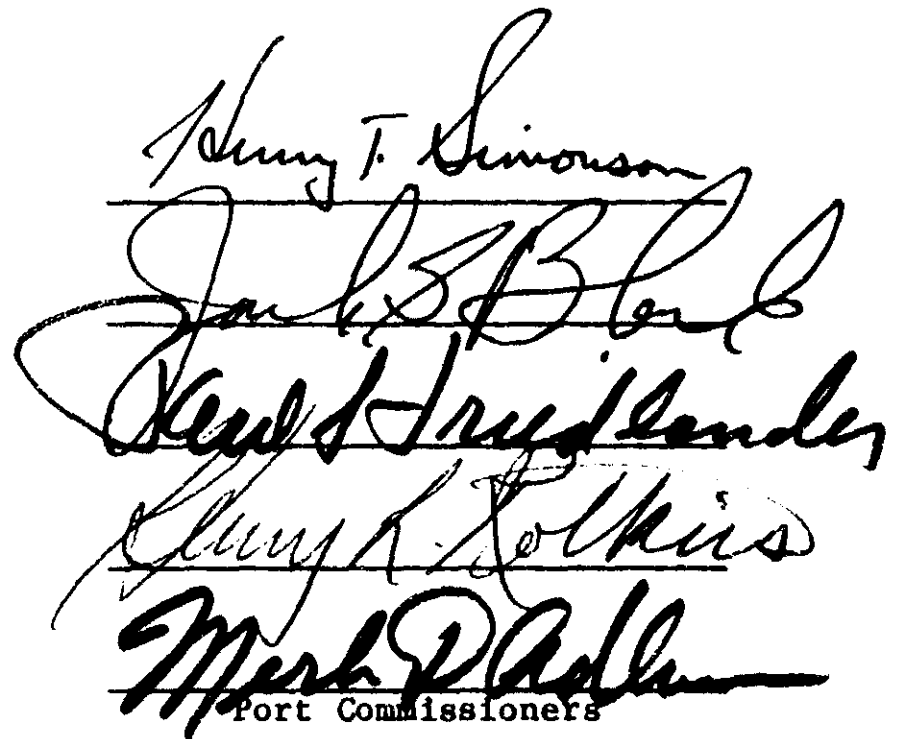 Henry T. Simonson
Jack S Block
Paul S Friedlander
Henry R. Kotkins
Merle D Adlum
Port Commissioners